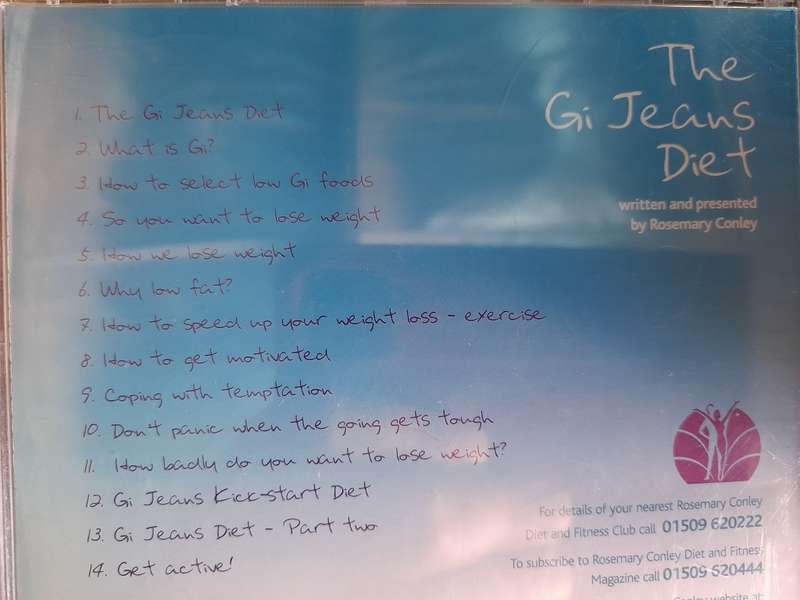 The
Gi Jeans
Diet
written and presented
by Rosemary Conley
1. The Gi Jeans Diet
2. What is Gi?
3. How to select low Gi foods
4. So you want to lose weight
5. How we lose weight
6. Why low fat?
7. How to speed up your weight loss - exercise
8. How to get motivated
9. Coping with temptation
10. Don't panic when the going gets tough
11. How badly do you want to lose weight?
12. Gi Jeans Kick-start Diet
13. Gi Jeans Diet - Part two
14. Get active!
For details of your nearest Rosemary Conley
Diet and Fitness Club call 01509 620222
To subscribe to Rosemary Conley Diet and Fitness
Magazine call 01509 620444
Conley website at: